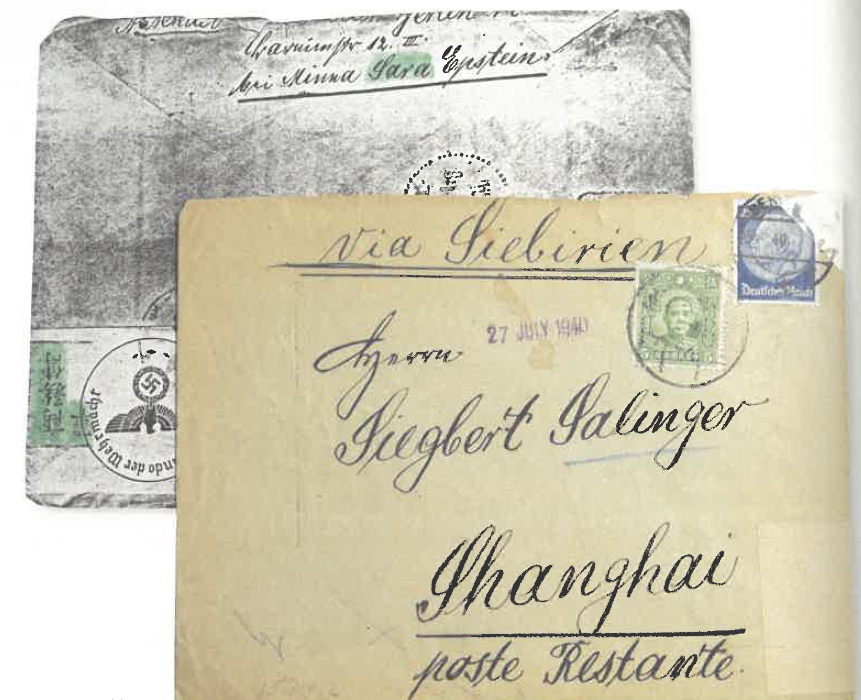 Absender
Berlin
12. III.
bei Minna Sara Epstein.
ando der Wehrmacht
via Siebirien
Deutsches Reich
27 JULY 1940
Herrn
Siegbert Salinger
Shanghai
poste Restante.